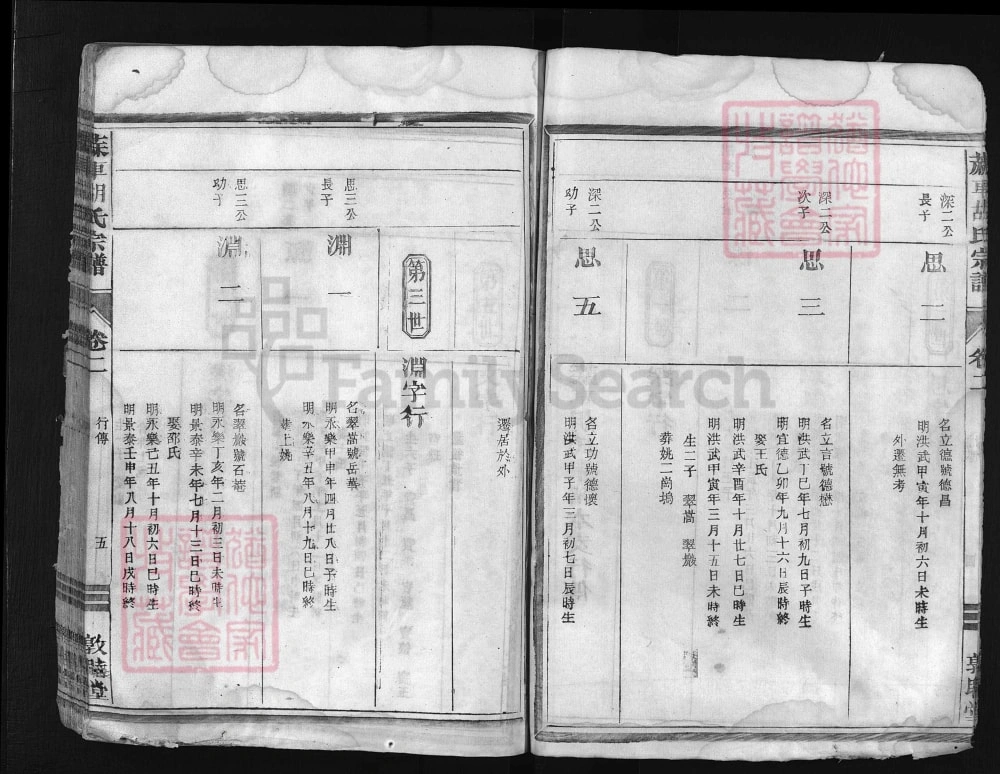 胡氏宗譜
卷二
深二公
長子
思二
名立德號德昌
明洪武甲寅年十月初六日未時生
外遷無考
深二公
次子
思三
名立言號德懋
明洪武丁巳年七月初九日子時生
明宣德乙卯年九月十六日辰時終
娶王氏
明洪武辛酉年十月廿七日巳時生
明洪武甲寅年三月十五日未時終
生二子 翠嵩 翠巖
葬姚二尚塢
深二公
幼子
思五
名立功號德壞
明洪武甲子年三月初七日辰時生
遷居於外
第三世
淵字行
思三公
長子
淵一
名翠嵩號岳華
明永樂甲申年四月廿八日子時生
明永樂辛丑年八月十九日巳時終
葬上姚
思三公
幼子
淵二
名翠巖號石菴
明永樂丁亥年二月初三日未時生
明景泰辛未年七月十三日巳時終
娶邵氏
明永樂己丑年十月初六日巳時生
明景泰壬申年八月十八日戌時終
胡氏宗譜
卷二
行傳
五
敦睦堂
FamilySearch